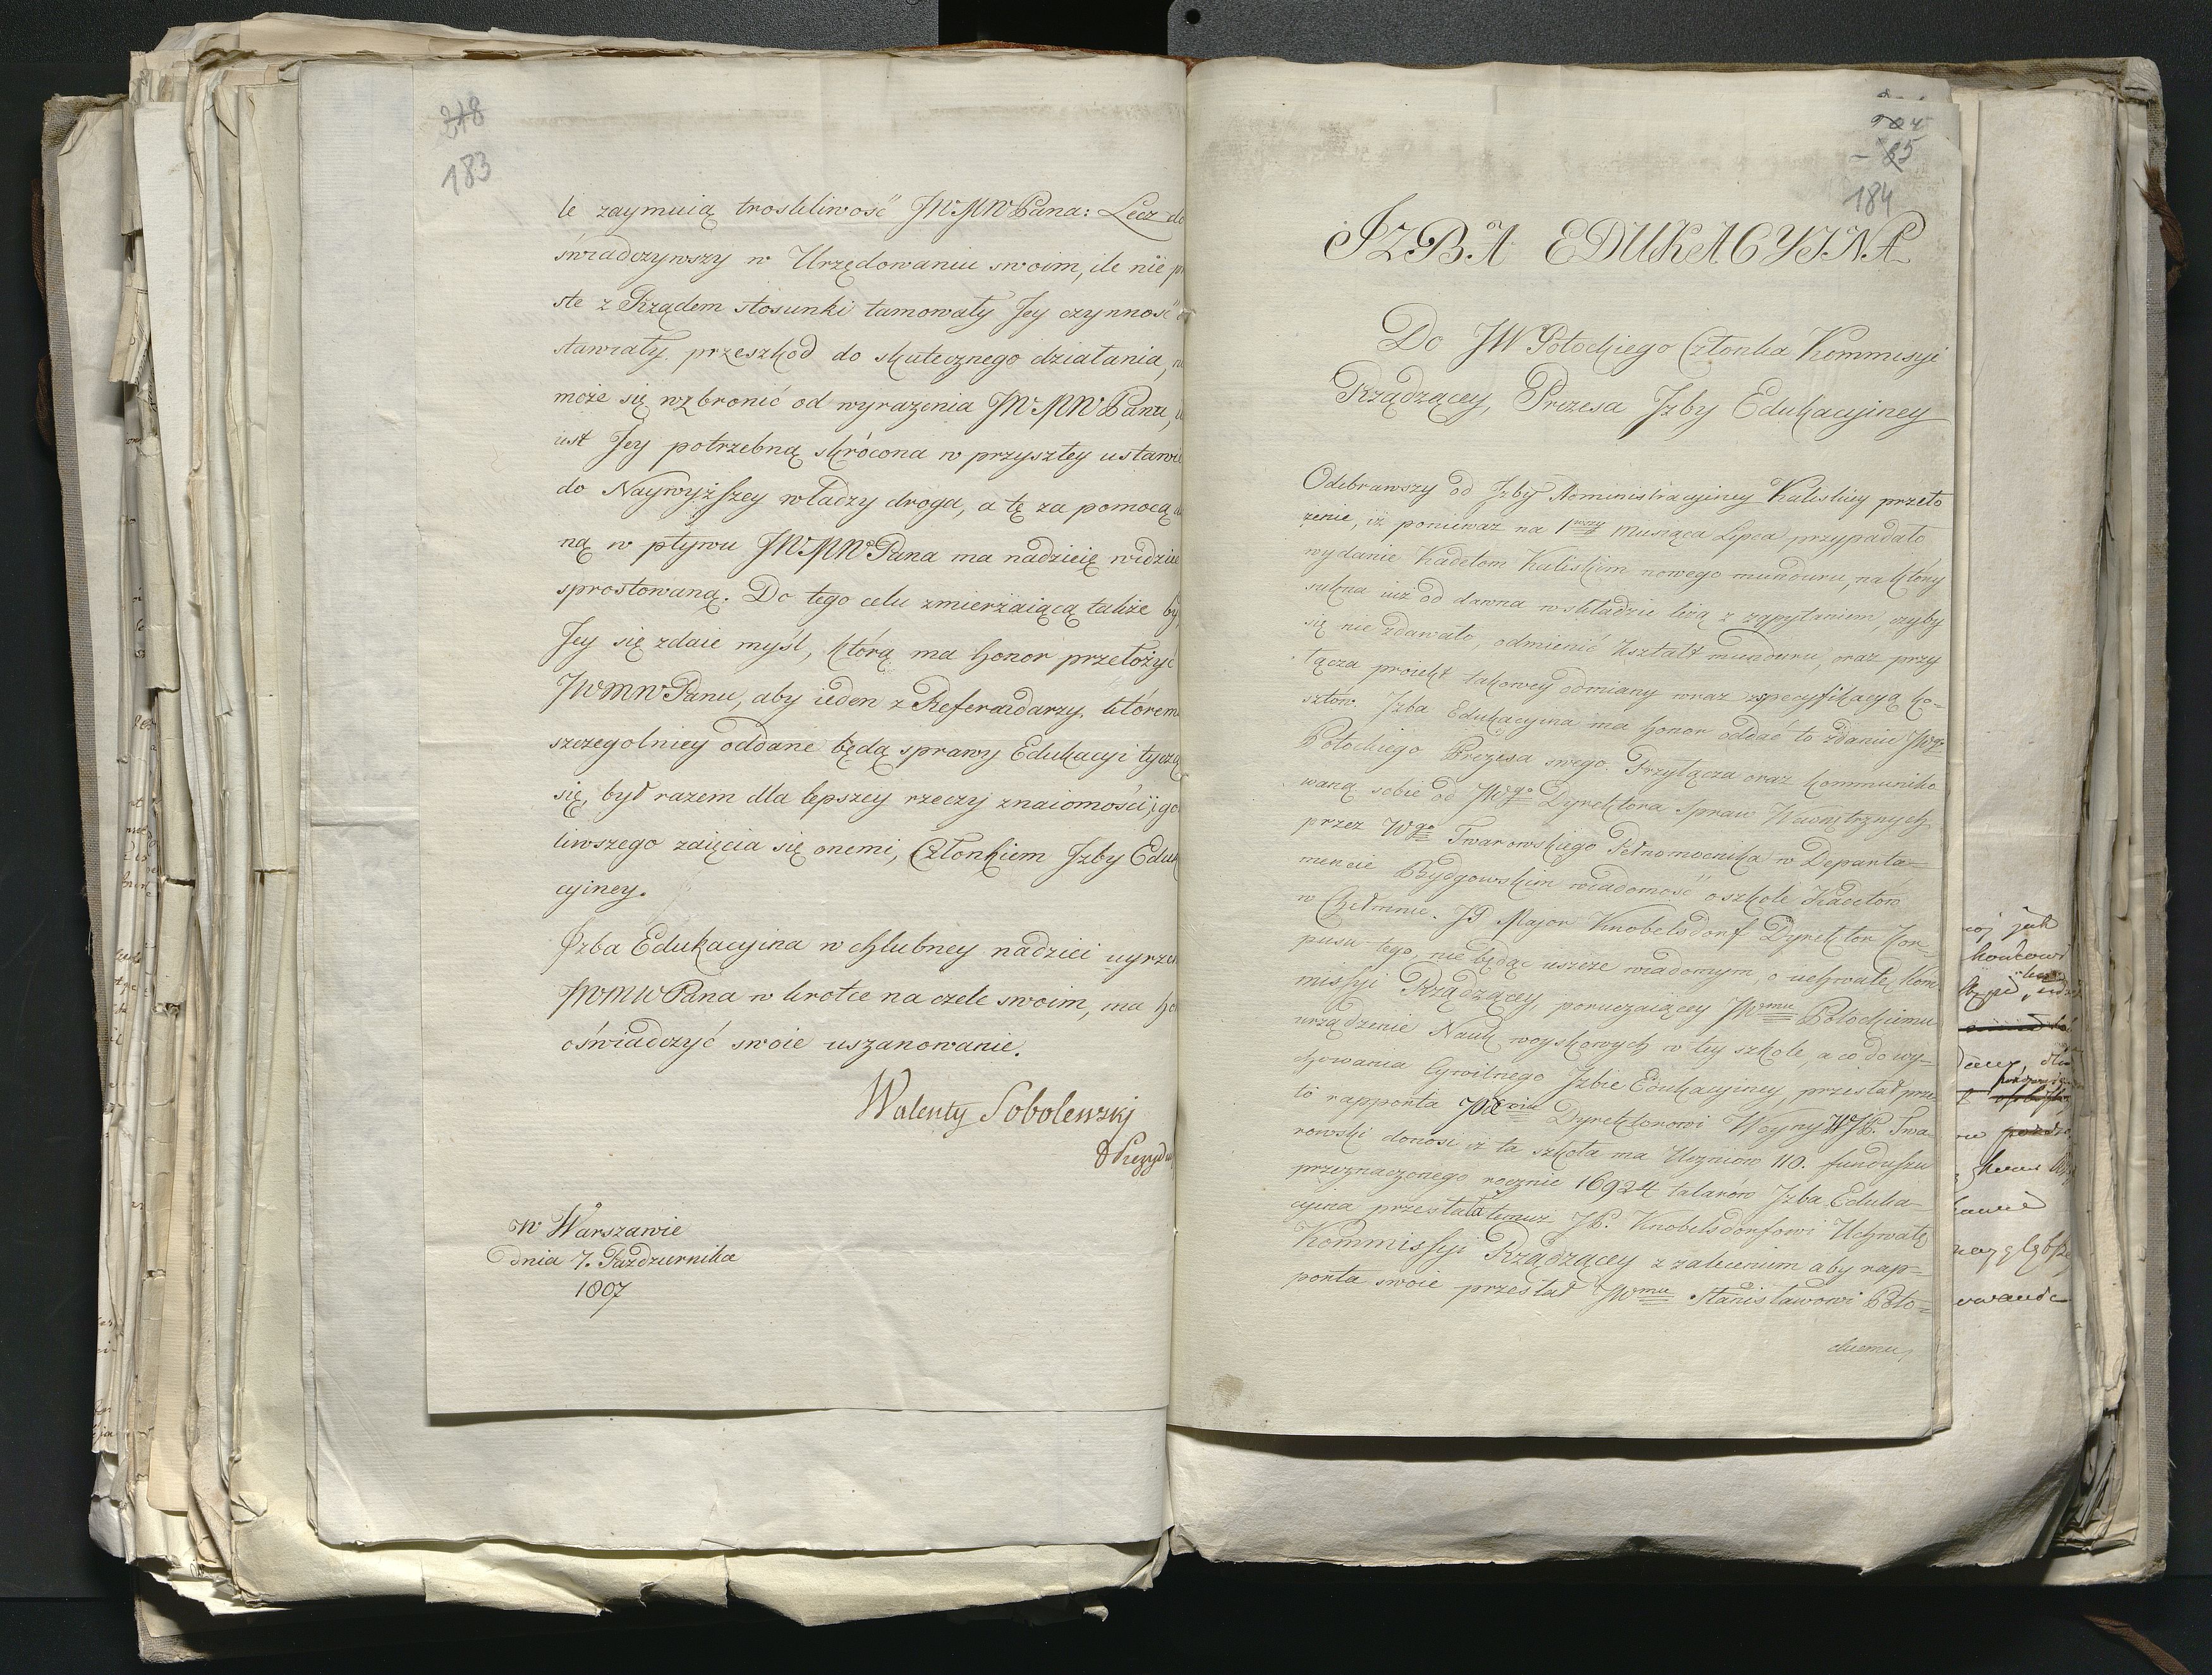 218
183
le zaymuią troskliwość JWMWPana: Lecz do
świadczywszy w Urzędowaniu swoim, ile nie pr
ste z Rządem stosunki tamowały Jey czynność
stawiały przeszkod do skutecznego działania, n
może się wzbronić od wyrażenia JWMWPanu,
iest Jey potrzebną skrócona w przyszłey ustawie
do Naywyższey władzy droga, a tę za pomocą
ną w pływu JWMWPana ma nadzieię widzie
sprostowaną. Do tego celu zmierzaiącą także by
Jey się zdaie myśl, którą ma honor przełożyć
JWMWPanu, aby ieden z Referendarzy, którem
szczegolniey oddane będą sprawy Edukacyi tyczą
się, był razem dla lepszey rzeczy znaiomości, i go
liwszego zaięcia się onemi, Członkiem Izby Eduk
cyiney.
Izba Edukacyina w chlubney nadziei uyrze
JWMWPana w krotce na czele swoim, ma ho
oświadczyć swoie uszanowanie.
Walenty Sobolewski
Prezyd
w Warszawie
dnia 7. Października
1807
184
IZBA EDUKACYINA
Do JW Potockiego Członka Kommisyi
Rządzącey, Prezesa Izby Edukacyiney
Odebrawszy od Izby Administracyiney Kaliskiey przeło
żenie, iż ponieważ na 1wszy Miesiąca Lipca przypadało
wydanie Kadetom Kaliskim nowego munduru, na który
sukna iuż od dawna w składzie leżą z zapytaniem, czyby
się nie zdawało, odmienić kształt munduru, oraz przy
łącza proiekt takowey odmiany wraz z specyfikacyą ko=
sztów. Izba Edukacyina ma honor oddać to zdaniu JWgo
Potockiego Prezesa swego. Przyłącza oraz kommuniko
waną sobie od JWgo Dyrektora Spraw Wewnętrznych
przez Wgo Twarowskiego Pełnomocnika w Departa=
mencie Bydgowskim wiadomość o szkole Kadetow
w Chełmnie. JP Major Knobelsdorf Dyrektor Kor=
pusu tego, nie będąc ieszcze wiadomym, o uchwale Kom
missyi Rządzącey, poruczaiącey JWmu Potockiemu
urządzenie Nauk woyskowych w tey szkole, a co do wy=
chowania Cywilnego Izbie Edukacyiney, przesłał prze
to rapporta Dyrektorowi Woyny WJP. Twa
rowski donosi iż ta szkoła ma Uczniow 110. funduszu
przeznaczonego rocznie 16924 talarów Izba Eduka=
cyina przesłała temuż JP. Knobelsdorfowi Uchwałę
Kommissyi Rządzącey z zaleceniem aby rap=
porta swoie przesłał JWmu Stanisławowi Poto=
ckiemu,